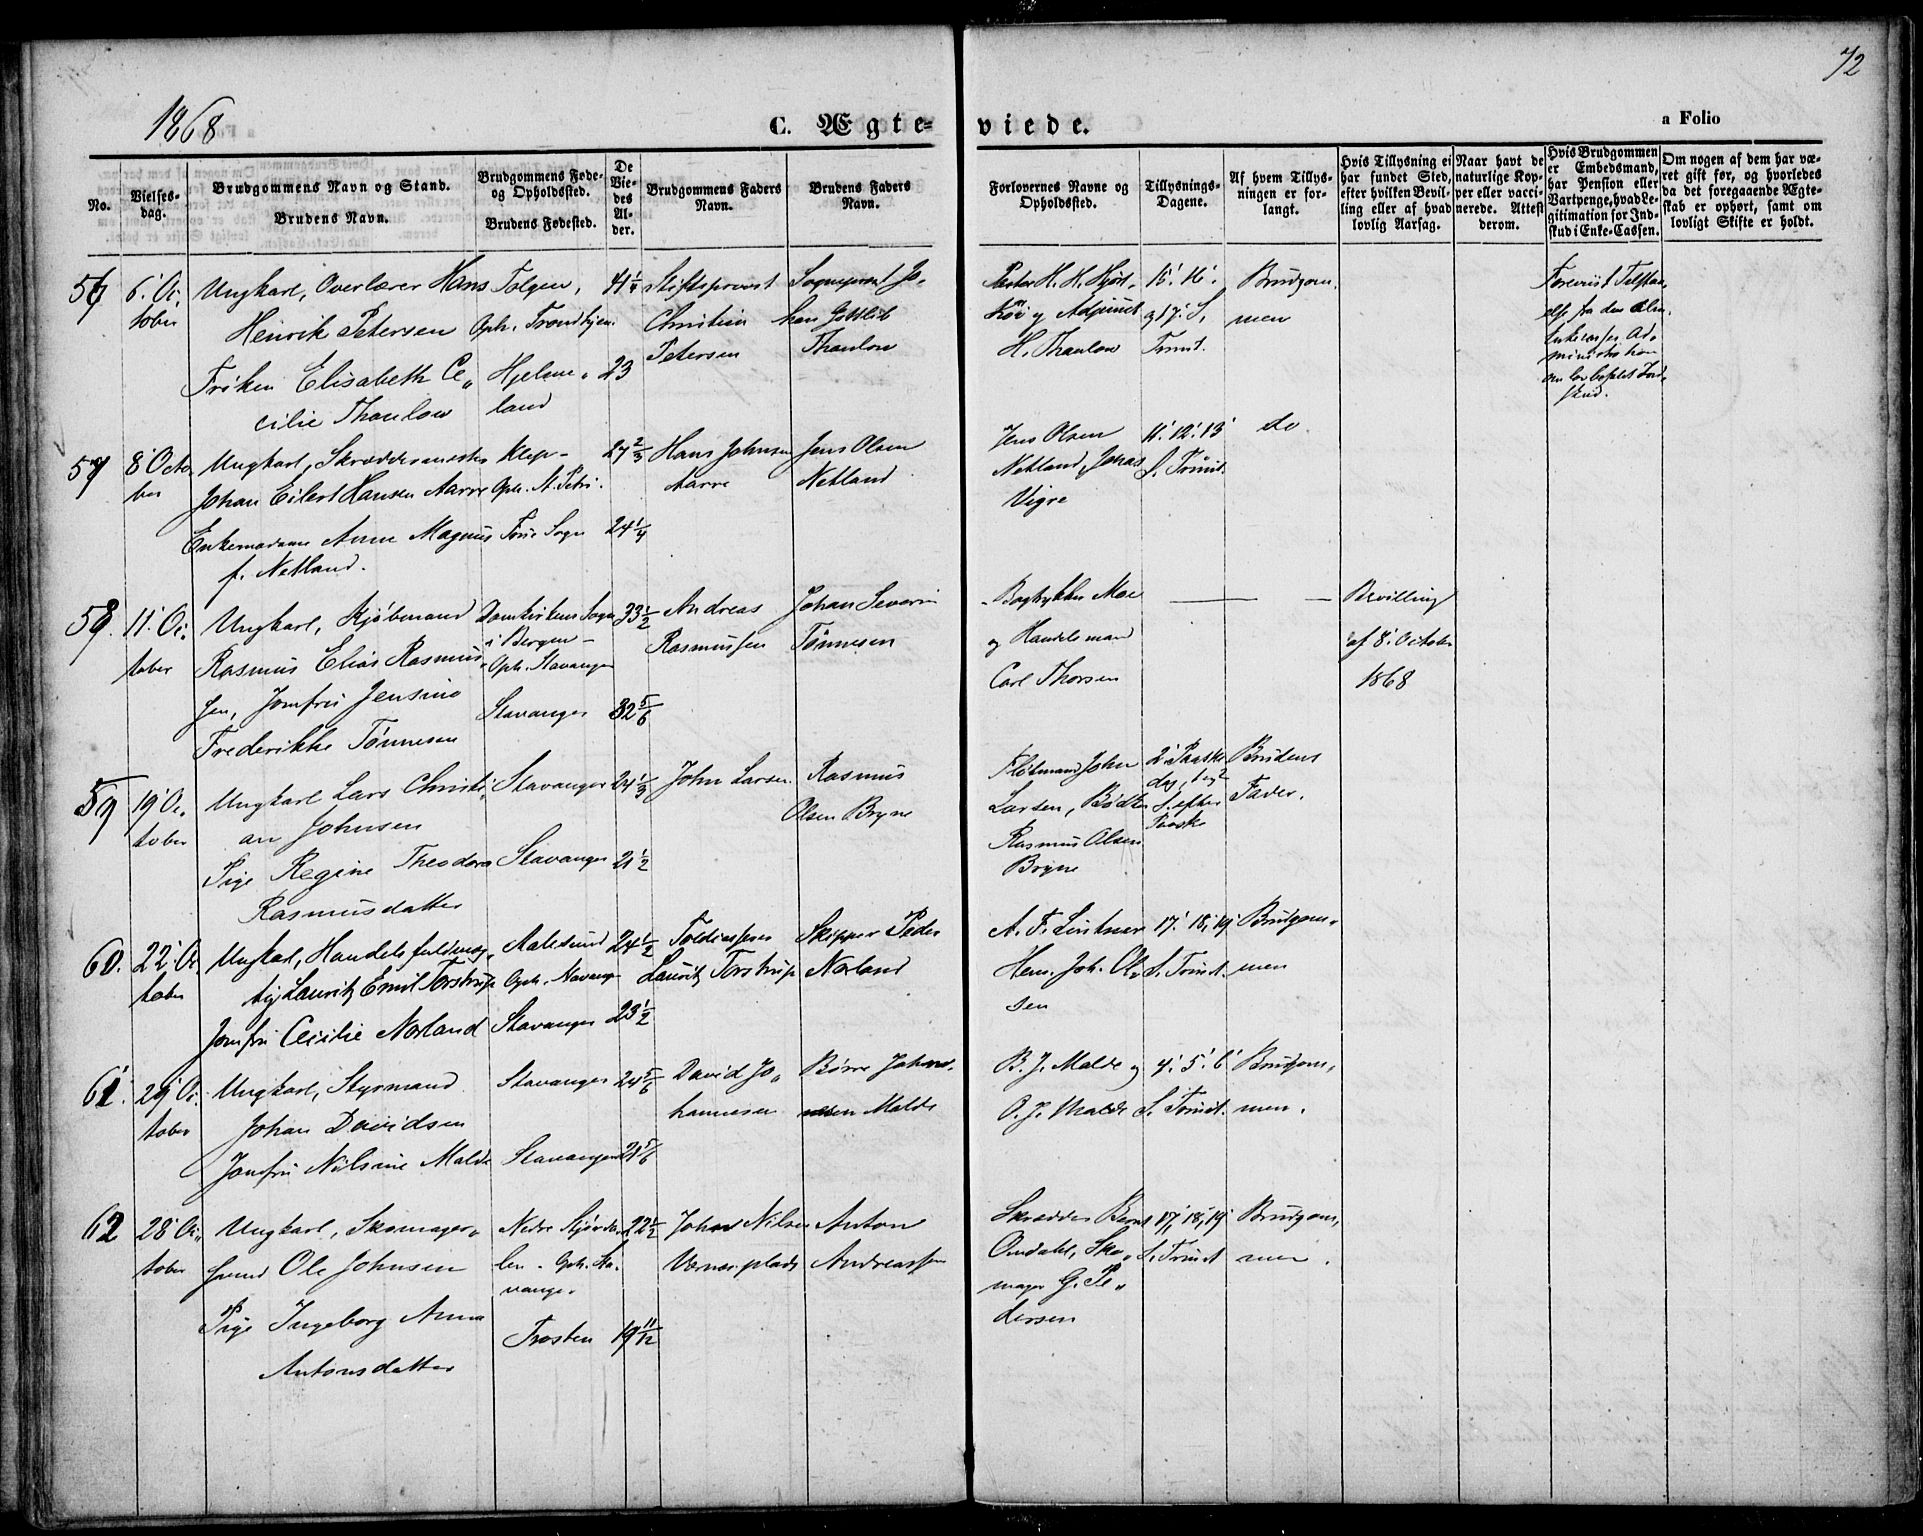 1868
C. Ægte-
viede.
a Folio
72
No.
Vielses-
dag.
Brudgommens Navn og Stand.
Brudens Navn.
Brudgommens Føde-
og Opholdssted.
Brudens Fødested.
De
Vie-
des
Al-
der.
Brudgommens Faders
Navn.
Brudens Faders
Navn.
Forlovernes Navne og
Opholdssted.
Tillysnings-
Dagene.
Af hvem Tillys-
ningen er for-
langt.
Hvis Tillysning ei
har fundet Sted,
efter hvilken Bevil-
ling eller af hvad
lovlig Aarsag.
Naar havt de
naturlige Kop-
per eller vacci-
nerede. Attest
derom.
Hvis Brudgommen
er Embedsmand,
har Pension eller
Vartpenge, hvad Le-
gitimation for Ind-
skud i Enke-Cassen.
Om nogen af dem har væ-
ret gift før, og hvorledes
da det foregaaende Ægte-
skab er ophørt, samt om
lovligt Skifte er holdt.
56
6. Oc,
tober
Ungkarl, Overlærer Hans
Henrik Petersen
Frøken Elisabeth Ce,,
cilie Thaulow
Tolgen,
Oph. Trondhjem
Hjelme,
land
41 1/4
23
Stiftsprovst
Christian
Petersen
Sogneprest Jo,
han Gottlieb
Thaulow
Pastor H. H.
og Adjunct
H. Thaulow
15. 16.
og 17. S.
Trinit.
Brudgom,
men
Foreviist Tilstaa,
else fra den Alm.
Enkecasses Ad,
ministration
om
skud.
57
8 Octo
ber
Ungkarl, Skræddermester
Johan Eilert Hansen Aarre
Enkemadame Anne Magnus
f. Netland.
Klep-
Oph. St. Petri.
Sogn
27 2/3
24 1/4
Hans Johnsen
Aarre
Jens Olsen
Netland
Jens Olsen
Netland, Jonas
Vigre
11. 12. 13
S. Trinit.
do.
58.
11. Oc,
tober
Ungkarl, Kjøbmand
Rasmus Elias Rasmus,,
sen, Jomfru Jensine
Frederikke Tönnesen
Domkirkens Sogn
i Bergen -
Oph. Stavanger
Stavanger
33 1/2
32 5/6
Andreas
Rasmussen
Johan Severin
Tönnesen
Bogtrykker Moe
og Handelsmand
Carl Thorsen
Bevilling
af 8. October
1868
59
19 Oc,
tober
Ungkarl Lars Christi,
an Johnsen
Pige Regine Theodora
Rasmusdatter
Stavanger
Stavanger
24 1/3
21 1/2
John Larsen
Rasmus
Olsen Bryne
Flötmand John
Larsen, Bödker
Rasmus Olsen
Bryne
2. Paaske
dag, 1 og 2
S. efter
Paaske
Brudens
Fader.
60.
22. Oc
tober
Ungkarl, Handelsfuldmæg,
tig Lauritz Emil Torstrup
Jomfru Cecilie Norland
Aalesund
Oph. Stavanger
Stavanger
24 1/2
23 1/2
Toldcasserer
Lauritz Torstrup
Skipper Peder
Norland
A. F. Lintner
Hem. Joh. Ol,
sen
17. 18, 19
S. Trinit.
Brudgom,
men
61.
29 Oc.
tober
Ungkarl, Styrmand
Johan Davidsen
Jomfru Nilsine Malde
Stavanger
Stavanger
24 5/6
21 5/6
David Jo,,
hannesen
Börre Johan.
nesen Malde
B. J. Malde og
O. J. Malde
4. 5. 6
S. Trinit.
Brudgom,
men.
62
28 Oc,,
tober
Ungkarl, Skomager,
svend Ole Johnsen
Pige Ingeborg Anna
Antonsdatter
Nedre Stjørda,
len - Oph. Sta.
vanger
Frosten
22 1/2
19 11/12
John Nilsen
Værnesplads
Anton
Andreassen
Skrædder Bernt
Omdahl, Sko,,
mager G. Pe,,
dersen
17, 18, 19
S. Trinit
Brudgom,
men.